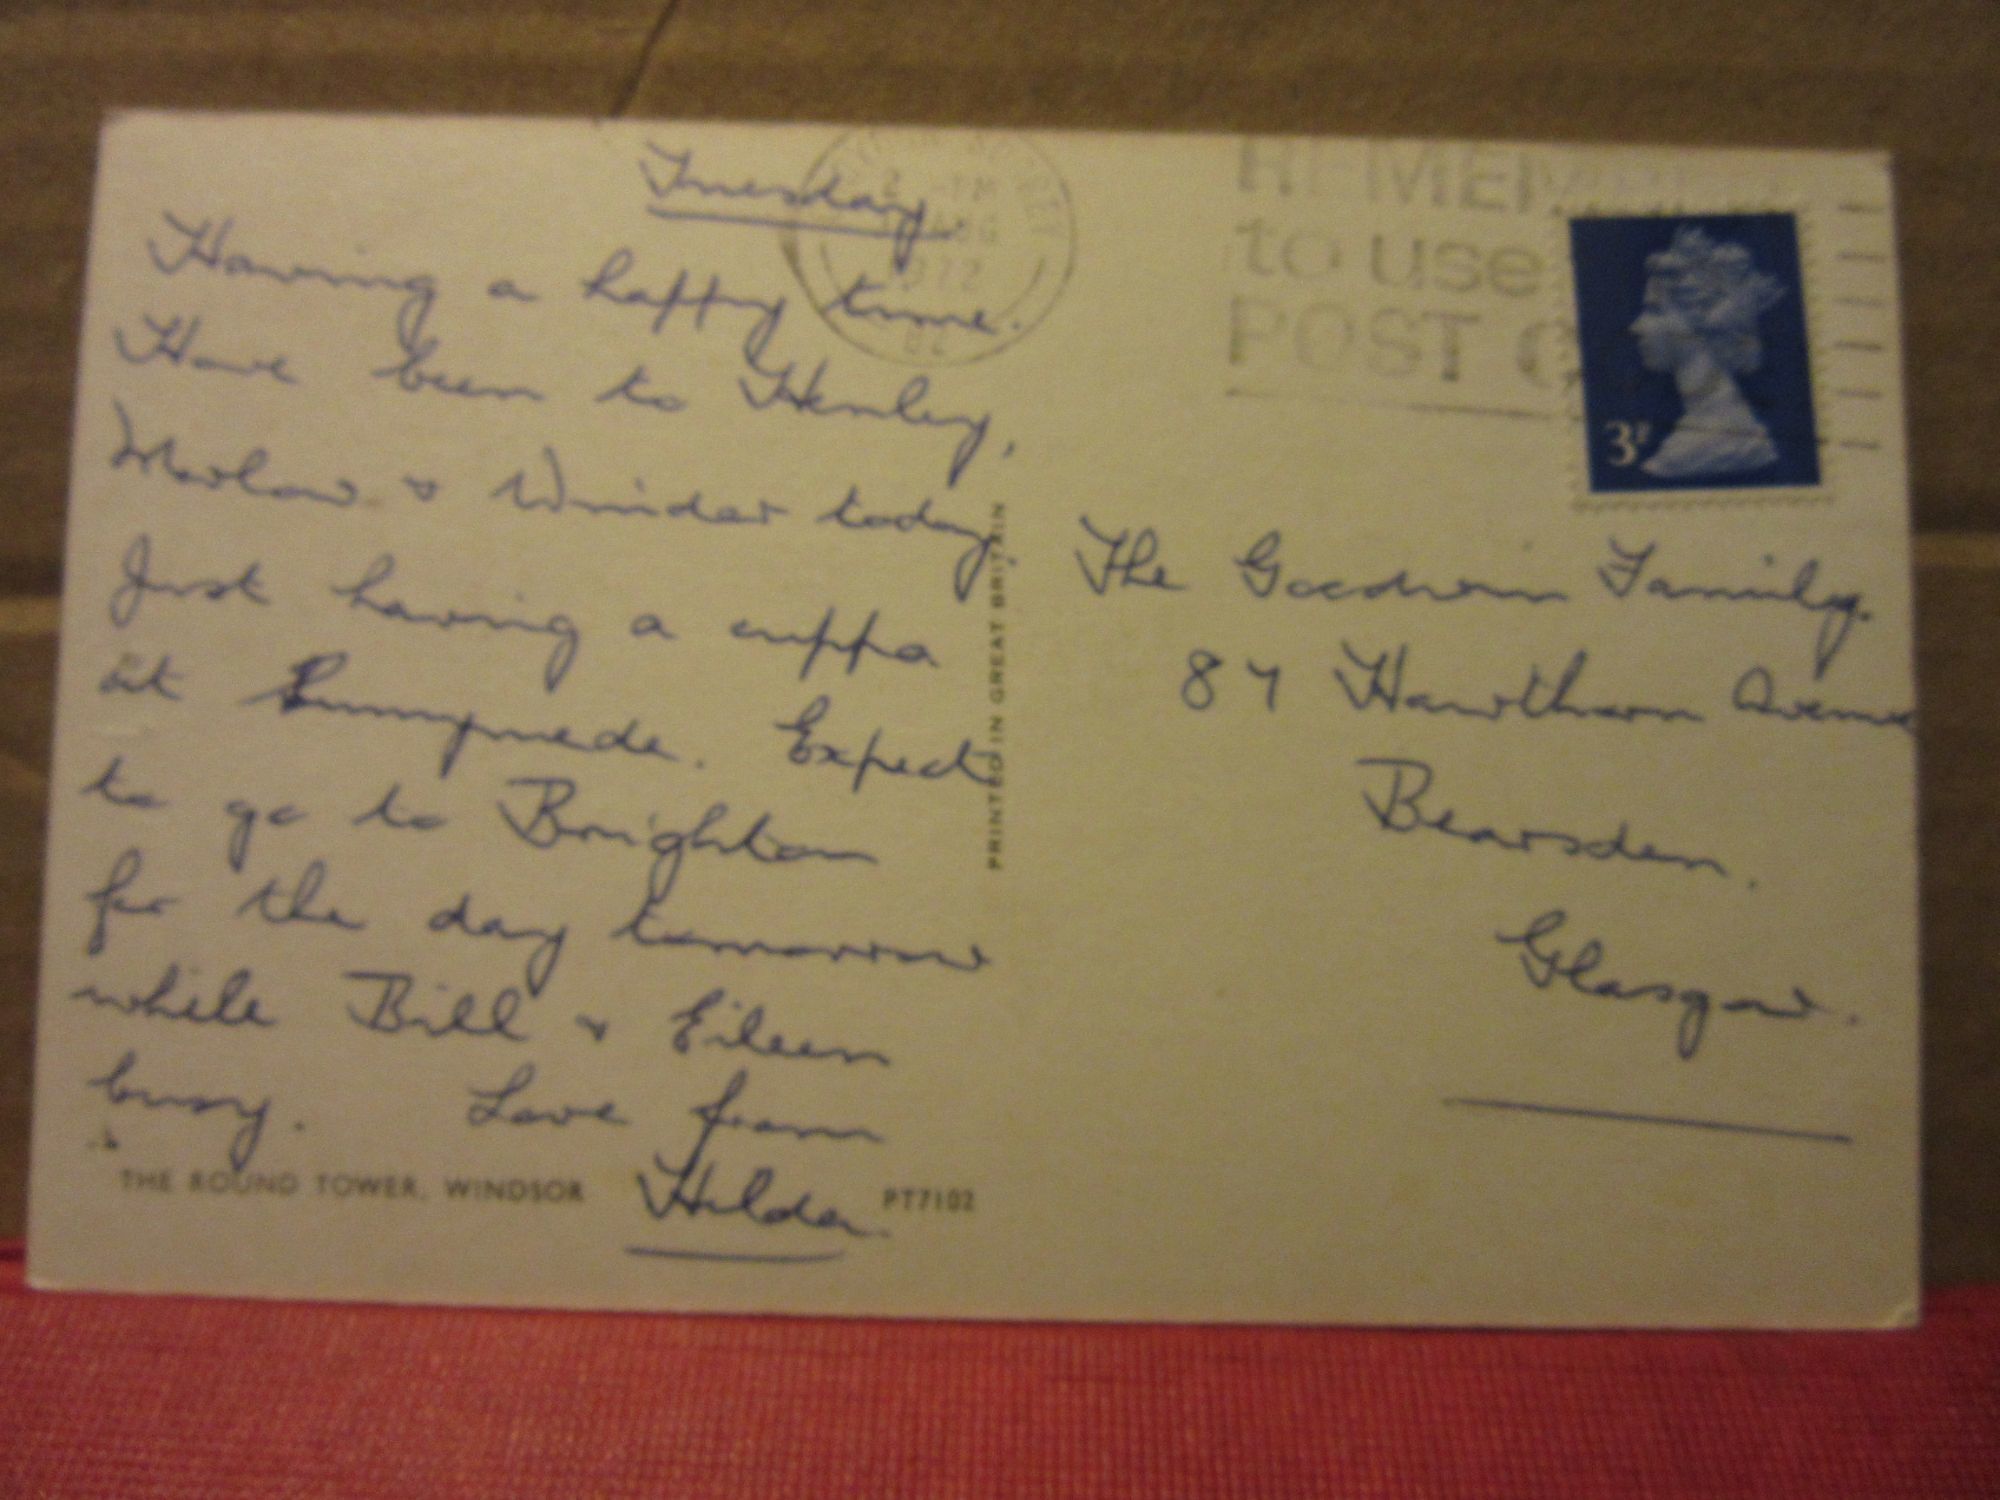 Tuesday.
Having a happy time.
Have been to Henley,
Marlow & Windsor today.
Just having a cuppa
at Runnymede. Expect
to go to Brighton
for the day tomorrow
while Bill & Eileen
busy. Love from
Hilda.
THE ROUND TOWER, WINDSOR
PT7102
PRINTED IN GREAT BRITAIN
AUG
1972
to use
POST
3P
The Goodwin Family.
87 Hawthorn Avenue
Bearsden.
Glasgow.